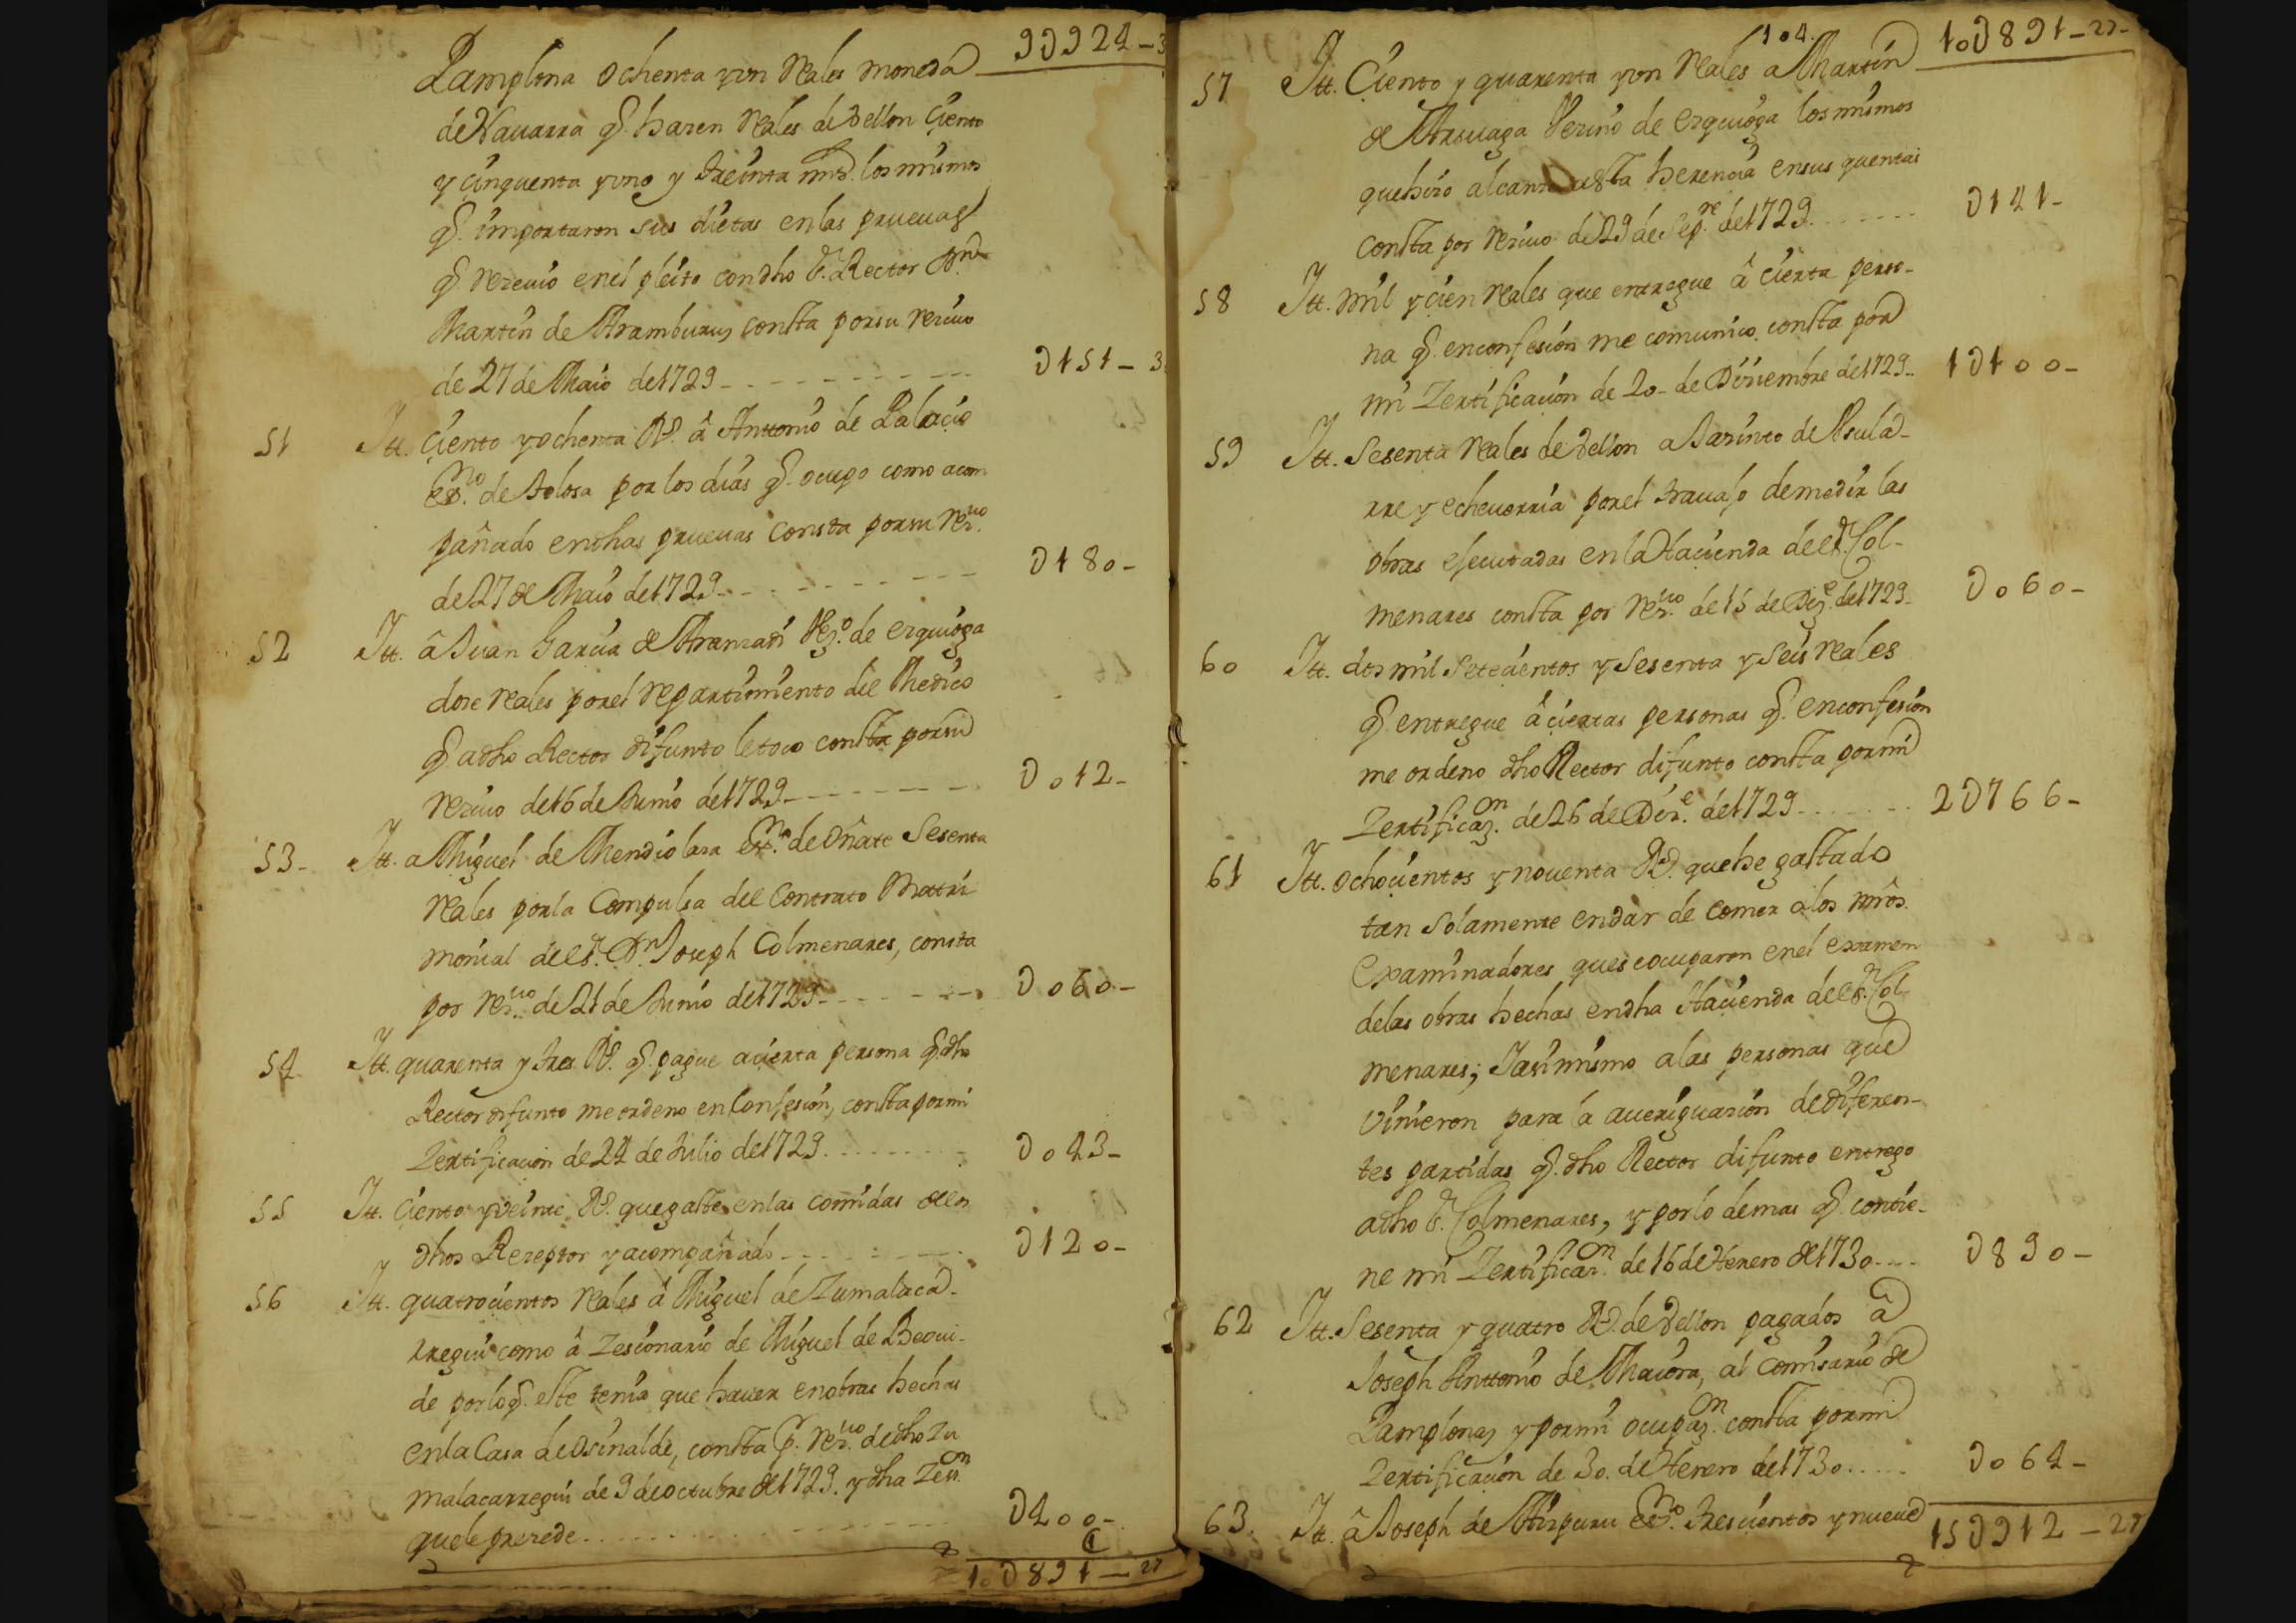 9U924-3
Pamplona ochenta y un Reales moneda
de Nauarra q. hazen Reales de Vellon Ciento
y cinquenta y uno y treinta mrs. los mismos
q. importaron sus dietas en las prueuas
q. Reziuio en el pleito con dho S.r Rector
Martin de Aramburu, consta por su reziuo
de 27 de Maio de 1729 U151-3
51 Itt. Ciento y ochenta Rs. â Anttonio de Palacio
ess.no de Tolosa por los dias q. ocupo como acom
pañado en dhas prueuas consta por su Rez.uo
de 27 de Maio de 1729 U180-
52 Itt. â Juan Garcia de Aranzadi Vez.o de ezquioga
doze reales por el repartimiento del Medico
q. a dho Rector difunto le toco consta por su
reziuo de 16 de Junio de 1729 U012-
53- Itt. a Miguel de Mendiolaza ess.no de Oñate Sesenta
Reales por la Compulsa del Contrato Mattri
monial del S.r D.n Joseph Colmenares, consta
por Rez.uo de 21 de Junio de 1729 U060-
54 Itt. quarenta y tres Rs. q. pague a cierta persona q. dho
Rector difunto me ordeno en Confesion, consta por mi
Zertificacion de 24 de Julio de 1729 U043-
55 Itt. Ciento y veinte Rs. que gaste en las comidas de los
dhos Rezeptor y acompañado U120-
56 Itt. quatrocientos Reales â Miguel de Zumalaca-
rregui como â Zesionario de Miguel de Beoui-
de por lo q. este tenia que hauer en obras hechas
en la Casa de Osinalde, consta p.r Rez.uo de dho Zu
malacarregui de 9 de octubre de 1729. y dha Zess.on
que le prezede U400-
10U891-27
104. 10U891-27-
57 Itt. Ciento y quarenta y un Reales a Martin
de Arsuaga Vezino de ezquioga los mismos
que hizo alcanze a esta herencia en sus quentas
consta por Reziuo de 29 de Sep.re de 1729 U141-
58 Itt. mil y cien Reales que entregue â cierta perso-
na q. en confesion me comunico, consta por
mi Zertificacion de 20- de Diziembre de 1729 1U100-
59 Itt. Sesenta Reales de Vellon a Jazinto de Asula-
rre y echeuerria por el trauajo de medir las
obras ejecutadas en la Hacienda del S.r Col-
menares consta por Rez.uo de 15 de Diz.e de 1729 U060-
60 Itt. dos mil Setecientos y Sesenta y Seis Reales
q. entregue â ciertas personas q. en confesion
me ordeno dho Rector difunto consta por mi
Zertificaz.on de 26 de Diz.e de 1729 2U766-
61 Itt. ochocientos y nouenta Rs. que he gastado
tan Solamente en dar de comer a los mros.
Examinadores que se ocuparon en el examen
de las obras hechas en dha Hacienda del S.r Col
menares; Y asimismo a las personas que
vinieron para la aueriguazion de diferen-
tes partidas q. dho Rector difunto entrego
a dho S.r Colmenares, y por lo demas q. contie-
ne mi Zertificaz.on de 16 de Henero de 1730 U890-
62 Itt. Sesenta y quatro Rs. de Vellon pagados â
Joseph Anttonio de Maiora, al Comisario de
Pamplona, y por mi ocupaz.on consta por mi
Zertificacion de 30. de Henero de 1730 U064-
63. Itt. â Joseph de Aizpuru ess.no trescientos y nueue
15U912-27